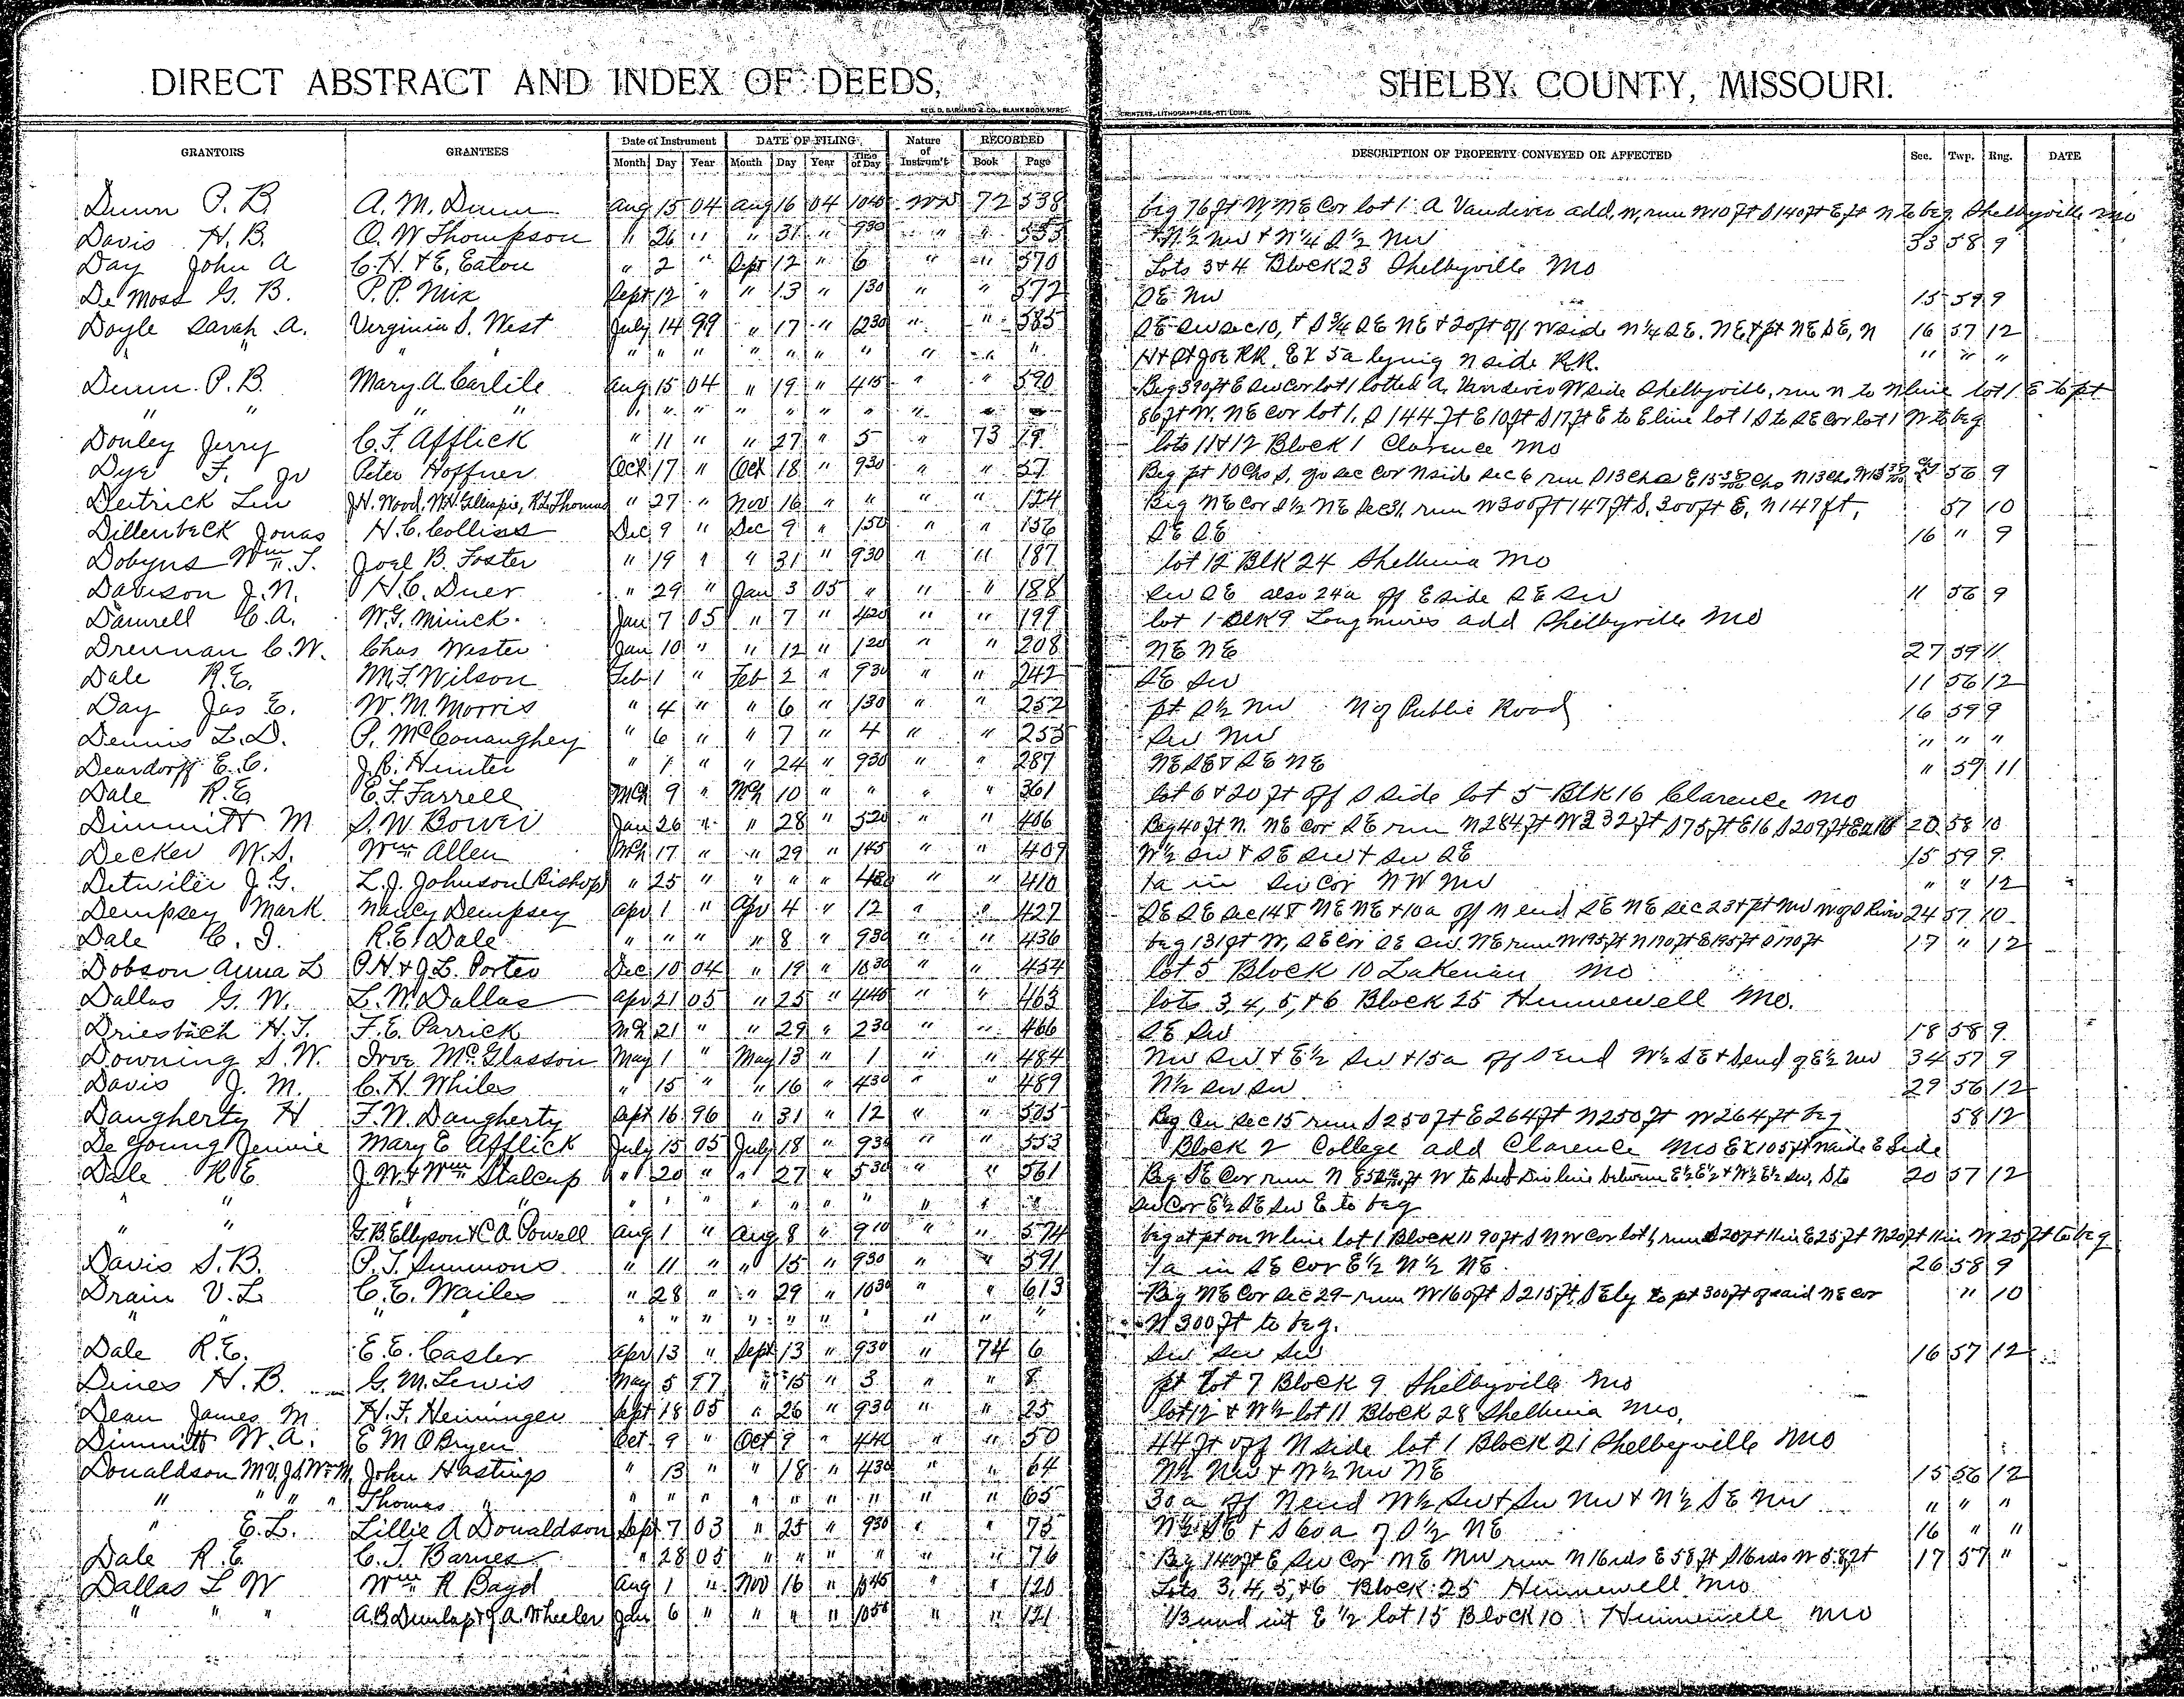 DIRECT ABSTRACT AND INDEX OF DEEDS, SHELBY COUNTY, MISSOURI.
GEO. D. BARNARD & CO., BLANK BOOK MFRS. PRINTERS, LITHOGRAPHERS, ST. LOUIS.
GRANTORS GRANTEES Date of Instrument DATE OF FILING Nature of Instrum't RECORDED DESCRIPTION OF PROPERTY CONVEYED OR AFFECTED Sec. Twp. Rng. DATE
Month Day Year Month Day Year Time of Day Book Page
Dunn P. B. A. M. Dunn Aug 15 04 Aug 16 04 1040 WD 72 538 beg 76 ft W, NE Cor lot 1 A Vandiver add, W, run W 10 ft S 140 ft E ft N to beg. Shelbyville Mo
Davis H. B. O. W Thompson " 26 " " 31 " 930 " " 553 N½ NW + N¼ S½ NW 33 58 9
Day John A C. H. & E. Eaton " 2 " Sept 12 " 6 " " 570 Lots 3 & 4 Block 23 Shelbyville Mo
De Moss G. B. P. P. Mix Sept 12 " " 13 " 130 " " 572 SE NW 15 59 9
Doyle Sarah A. Virginia S. West July 14 99 " 17 " 1230 " " 585 SE SW Sec 10, + S¾ SE NE + 20 ft off W side N¼ SE. NE, + pt NE SE, N 16 57 12
" " " " " " " " " " " " " H & St Joe RR. EX 5a lying N side RR. " " "
Dunn P. B. Mary A. Carlile Aug 15 04 " 19 " 415 " " 590 Beg 390 ft E SW Cor lot 1 lotted A. Vandiver W side Shelbyville, run N to N line lot 1 E to pt
" " " " " " " " " " " " " " 86 ft W. NE Cor lot 1, S 144 ft E 10 ft S 17 ft E to E line lot 1 S to SE Cor lot 1 W to beg
Donley Jerry C. F. Afflick " 11 " " 27 " 5 " 73 19 lots 11 & 12 Block 1 Clarence Mo
Dye F. Jr Peter Hoffner Oct 17 " Oct 18 " 930 " " 57 Beg pt 10 Chs S, Sec Cor N side Sec 6 run S 13 Chs E 15 Chs N 13 Chs, W 56 9
Deitrick Lin J. H. Wood, W. H. Gillespie, R. L. Thomas " 27 " Nov 16 " " " " 124 Beg NE Cor S½ NE Sec 31, run W 300 ft 147 ft S, 300 ft E, N 147 ft, 57 10
Dillenbeck Jonas H. C. Colliss Dec 9 " Dec 9 " 150 " " 156 SE SE 16 " 9
Dobyns Wm. T. Joel B. Foster " 19 " " 31 " 930 " " 187 lot 12 Blk 24 Shelbina Mo
Davison J. N. H. C. Duer " 29 " Jan 3 05 " " " 188 SW SE also 24a off E side SE SW 11 56 9
Darnrell C. A. W. G. Minick. Jan 7 05 " 7 " 420 " " 199 lot 1 Blk 9 Longmires add Shelbyville Mo
Drennan C. W. Chas Wester Jan 10 " " 12 " 120 " " 208 NE NE 27 59 11
Dale R. E. M. F. Wilson Feb 1 " Feb 2 " 930 " " 242 SE SW 11 56 12
Day Jas E. W. M Morris " 4 " " 6 " 130 " " 252 pt S½ NW N of Public Road 16 59 9
Dennis L. D. P. McConaughey " 6 " " 7 " 4 " " 253 SW NW " " "
Deardorff E. C. J. R. Hunter " 1 " " 24 " 930 " " 287 NE SE + SE NE " 59 11
Dale R. E. E. F. Farrell Mch 9 " Mch 10 " " " " 361 lot 6 & 20 ft off S side lot 5 Blk 16 Clarence Mo
Dimmitt M S. W. Bower Jan 26 " " 28 " 520 " " 406 Beg 40 ft N. NE Cor SE run N 284 ft W 232 ft S 75 ft E 16 S 209 ft E 20 58 10
Decker W. S. Wm Allen Mch 17 " " 29 " 145 " " 409 W½ SW + SE SW + SW SE 15 59 9
Detwiler J. G. L. J. Johnson (Bishop) " 25 " " " " 430 " " 410 1a in SW Cor NW NW " " 12
Dempsey Mark. Nancy Dempsey Apr 1 " Apr 4 " 12 " " 427 SE SE Sec 14 & NE NE + 10a off N end SE NE Sec 23 + pt NW W of S River 24 57 10
Dale C. I. R. E. Dale " " " " 8 " 930 " " 436 beg 131 ft W, SE Cor SE SW. NE run W 195 ft N 170 ft E 195 ft S 170 ft 17 " 12
Dobson Anna L P. H. & J. L. Porter Dec 10 04 " 19 " 1030 " " 454 lot 5 Block 10 Lakenan Mo
Dallas G. W. L. W. Dallas Apr 21 05 " 25 " 440 " " 463 lots 3, 4, 5, & 6 Block 25 Hunnewell Mo.
Driesbach H. T. F. E. Parrick Mch 21 " " 29 " 230 " " 466 SE SW 18 58 9
Downing S. W. Irve McGlasson May 1 " May 13 " 1 " " 484 NW SW + E½ SW + 15a off S end W½ SE + S end of E½ NW 34 57 9
Davis J. M. C. H. Whiles " 15 " " 16 " 430 " " 489 N½ SW SW 29 56 12
Daugherty H F. W. Daugherty Sept 16 96 " 31 " 12 " " 505 Beg Cen Sec 15 run S 250 ft E 264 ft N 250 ft W 264 ft beg 58 12
De Young Jennie Mary E Afflick July 15 05 July 18 " 930 " " 553 Block 2 College add Clarence Mo EX 105 ft N side E Side
Dale R E J. W. & Wm Stalcup " 20 " " 27 " 530 " " 561 Beg SE Cor run N ft W to Sub Div line between E½ E½ + W½ E½ SW, S to 20 57 12
" " " " " " " " " " " " " SW Cor E½ SE SW E to beg
" " G. B. Ellyson & C. A. Powell Aug 1 " Aug 8 " 910 " " 574 beg at pt on W line lot 1 Block 11 90 ft S NW Cor lot 1, run S 20 ft 11 in E 25 ft N 20 ft 11 in W 25 ft to beg
Davis S. B. P. T. Simmons " 11 " " 15 " 930 " " 591 1a in SE Cor E½ N½ NE. 26 58 9
Drain V. L C. E. Wailes " 28 " " 29 " 1030 " " 613 Beg NE Cor Sec 29 run W 160 ft S 215 ft, SEly to pt 300 ft of said NE Cor " 10
" " " " " " " " " " " " " " N 300 ft to beg.
Dale R. E. E. E. Casler Apr 13 " Sept 13 " 930 " 74 6 SW SW SW 16 57 12
Dines H. B. G. M. Lewis May 5 97 " 15 " 3 " " 8 pt Lot 7 Block 9 Shelbyville Mo
Dean James M H. F. Heininger Sept 18 05 " 26 " 930 " " 25 lot 12 & W½ lot 11 Block 28 Shelbina Mo.
Dimmitt W. A. E M OBryen Oct 9 " Oct 9 " 440 " " 50 44 ft off N side lot 1 Block 21 Shelbyville Mo
Donaldson M. V, J. S, Wm M, John Hastings " 13 " " 18 " 430 " " 64 N½ NW + N½ NW NE 15 56 12
" " " " Thomas " " " " " " " " " " 65 30 a off N end W½ SW + SW NW + N½ SE NW " " "
" E. L. Lillie A Donaldson Sept 7 03 " 25 " 930 " " 75 N½ SE + S 60 a of S½ NE 16 " "
Dale R. E C. T. Barnes " 28 05 " " " " " " 76 Beg 140 ft E, SW Cor NE NW run N 16 rds E 58 ft S 16 rds W 58 ft 17 57 "
Dallas L W Wm R Bagd Aug 1 " Nov 16 " " " 120 Lots 3, 4, 5, & 6 Block 25 Hunnewell Mo
" " " A. B Dunlap & J. A. Wheeler Jan 6 " " " " 1050 " " 121 1/3 und int E ½ lot 15 Block 10 Hunnewell Mo